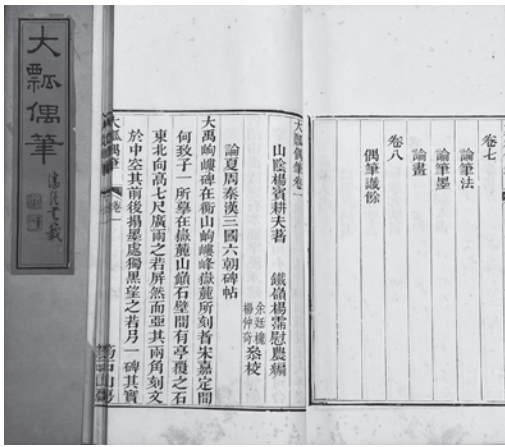 大瓢偶筆
卷七
論筆法
論筆墨
論畫
卷八
偶筆識餘
大瓢偶筆卷一
山陰楊賓耕夫著
鐵嶺楊霈慰農編
余廷槐
楊仲奇
叅校
論夏周秦漢三國六朝碑帖
大禹岣嶁碑在衡山岣嶁峰嶽麓所刻者宋嘉定間
何致子一所摹在嶽麓山巔石壁間有亭覆之石
東北向高七尺廣兩之若屏然而亞其兩角刻文
於中空其前後搨墨處獨黑望之若另一碑其實
大瓢偶筆
卷一